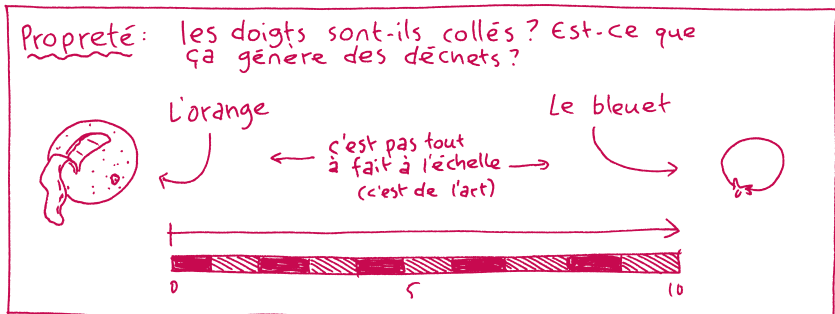 Propreté: les doigts sont-ils collés? Est-ce que
ça génère des déchets?
L'orange
Le bleuet
c'est pas tout
à fait à l'échelle
(c'est de l'art)
0 5 10